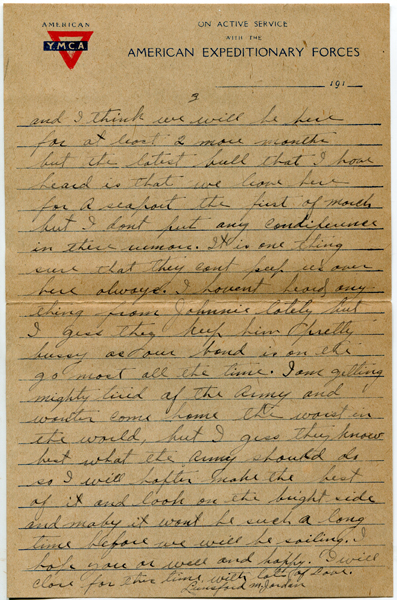 AMERICAN
Y.M.C.A
ON ACTIVE SERVICE
WITH THE
AMERICAN EXPEDITIONARY FORCES
191
3
and I think we will be here
for at least 2 more months
but the latest bull that I have
heard is that we leave here
for a seaport the first of march
but I dont put any
in these rumors. It is one thing
sure that they cant keep us over
here always. I havent heard any
thing from Johnnie lately but
I gess they keep him pretty
bussy as our band is on the
go most all the time. I am getting
mighty tired of the Army and
wanter come home the worst in
the world, but I gess they know
best what the army should do
so I will hafter make the best
of it and look on the bright side
and maby it wont be such a long
time before we will be sailing. I
hope you or well and happy. I will
close for this time with lots of love.
Lunsford M. Jordan